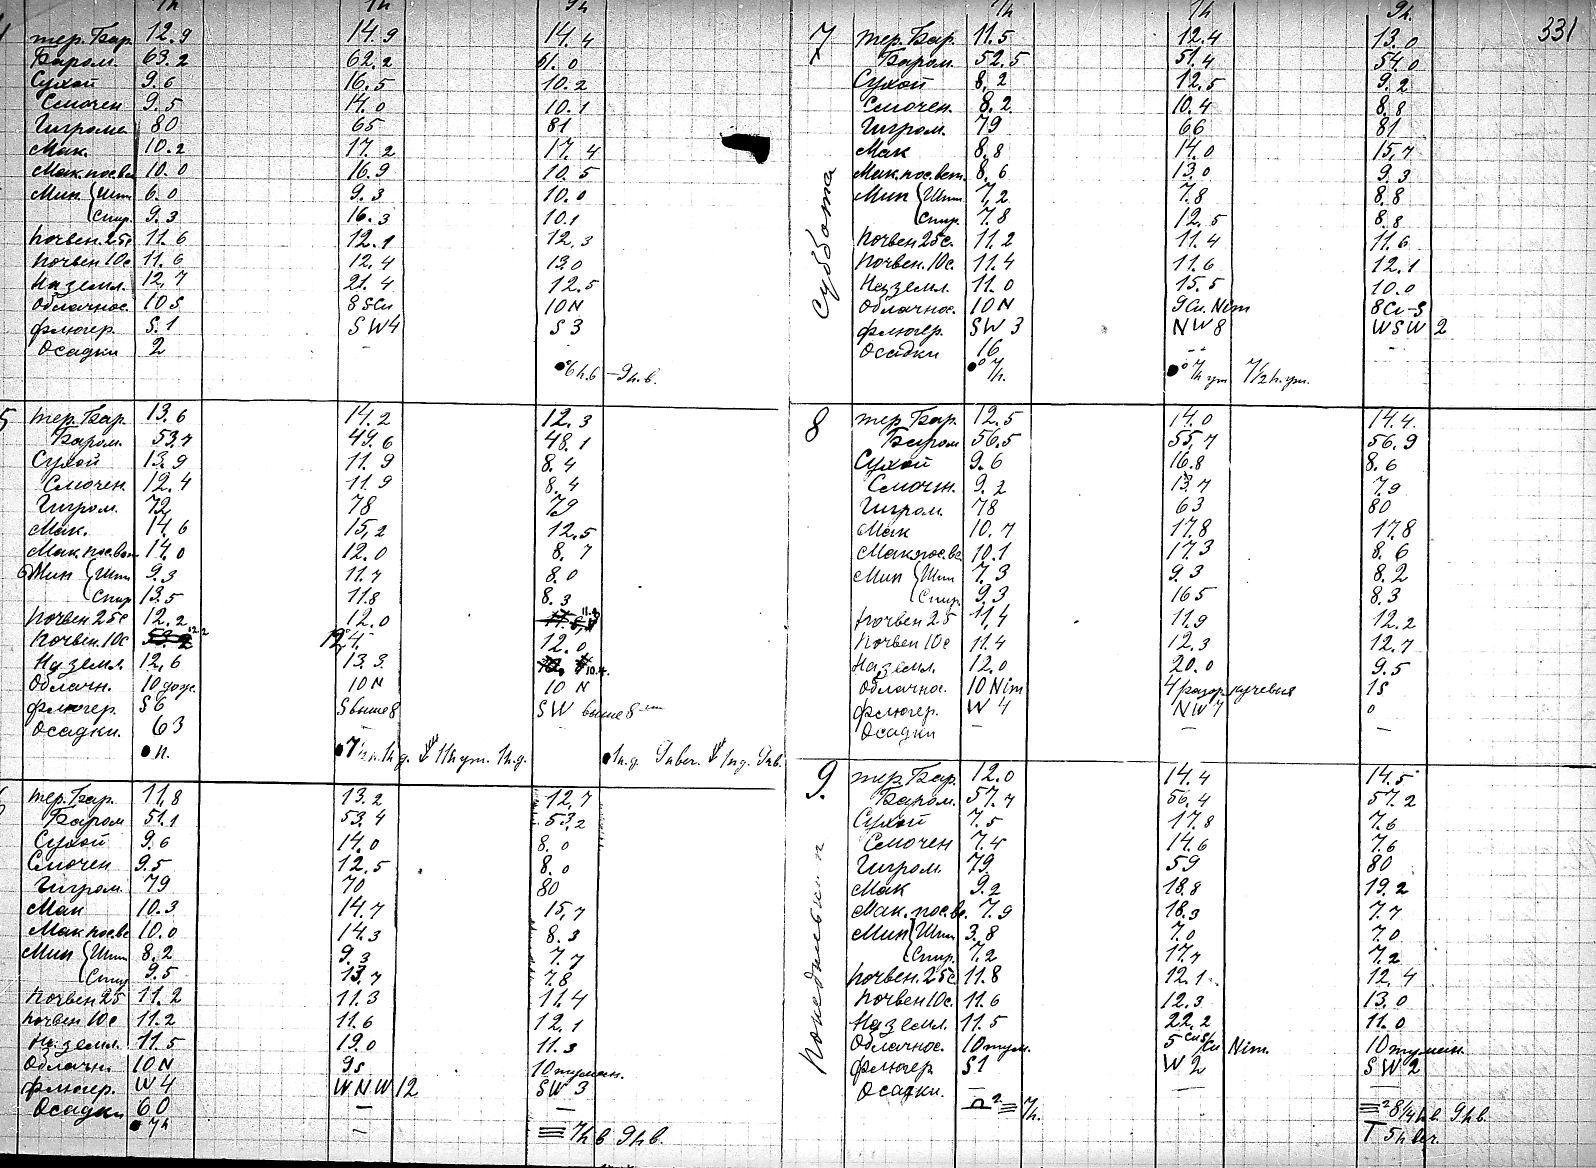 7h 1h 9h
тер. Бар. 12.9 14.9 14.4
Баром. 63.2 62.2 61.0
Сухой 9.6 16.5 10.2
Смочен 9.5 14.0 10.1
Гигром. 80 65 81
Мак. 10.2 17.2 17.4
Мак. посл. 10.0 16.9 10.5
Мин { Шт 6.0 9.3 10.0
Спир. 9.3 16.3 10.1
Почвен. 25с 11.6 12.1 12.3
Почвен 10с 11.6 12.4 13.0
На земл. 12.7 21.4 12.5
Облачнос. 10 S 8 SCu 10 N
флюгер. S. 1 SW4 S 3
Осадки 2 –
●° 6h.в – 9h.в.
5 тер. Бар. 13.6 14.2 12.3
Баром. 53.7 49.6 48.1
Сухой 13.9 11.9 8.4
Смочен. 12.4 11.9 8.4
Гигром. 72 78 79
Мак. 14.6 15.2 12.5
Мак посл. вст 14.0 12.0 8.7
Мин { Шт 9.3 11.7 8.0
Спир 13.5 11.8 8.3
Почвен 25с 12.2 12.0
Почвен. 10с 12.2 12.4 12.0
На земл. 12.6 13.3 10.4
Облачн. 10 дож. 10 N 10 N
флюгер. S6 S выше 8 SW выше 8
Осадки. 63 – –
● n.
6 тер. Бар. 11.8 13.2 12.7
Баром 51.1 53.4 53.2
Сухой 9.6 14.0 8.0
Смочен 9.5 12.5 8.0
Гигром. 79 70 80
Мак 10.3 14.7 15.7
Мак посл. 10.0 14.3 8.3
Мин { Шт 8.2 9.3 7.7
Спир 9.5 13.7 7.8
Почвен 25 11.2 11.3 11.4
Почвен 10с 11.2 11.6 12.1
На земл. 11.5 19.0 11.3
Облачн. 10 N 9s 10 туман.
флюгер. W4 WNW 12 SW 3
Осадки 60 – –
● 7h – ≡ 7h в 9h в.
331
7h 1h 9h.
7 тер. Бар. 11.5 12.4 13.0
Баром. 52.5 51.4 54.0
Сухой 8.2 12.5 9.2
Смочен. 8.2 10.4 8.8
Гигром. 79 66 81
Мак 8.8 14.0 15.7
Мак. пос. вст. 8.6 13.0 9.3
Мин { Шт 7.2 7.8 8.8
Спир. 7.8 12.5 8.8
Почвен 25с. 11.2 11.4 11.6
Почвен. 10с. 11.4 11.6 12.1
На земл. 11.0 15.5 10.0
Облачнос. 10 N 9 Cu. Nim 8 Cu-S
флюгер. SW 3 NW 8 WSW 2
Осадки 16 – –
●° 7h. ●° 7h ут 7 1/2 h. ут.
Суббота
8 тер. Бар. 12.5 14.0 14.4.
Баром 56.5 55.7 56.9
Сухой 9.6 16.8 8.6
Смочен. 9.2 13.7 7.9
Гигром. 78 63 80
Мак 10.7 17.8 17.8
Мак посл. 10.1 17.3 8.6
Мин { Шт 7.3 9.3 8.2
Спир 9.3 16.5 8.3
Почвен 25 11.4 11.9 12.2
Почвен 10с 11.4 12.3 12.7
На земл. 12.0 20.0 9.5
Облачнос. 10 Nim 4 разор. кучевыя 1s
флюгер. W 4 NW 7 0
Осадки – – –
9. тер. Бар. 12.0 14.4 14.5
Баром. 57.7 56.4 57.2
Сухой 7.5 17.8 7.6
Смочен 7.4 14.6 7.6
Гигром. 79 59 80
Мак 9.2 18.8 19.2
Мак. посл. вс. 7.9 18.3 7.7
Мин { Шт 3.8 7.0 7.0
Спир. 7.2 17.7 7.2
Почвен. 25с 11.8 12.1 12.4
Почвен 10с. 11.6 12.3 13.0
На земл. 11.5 22.2 11.0
Облачнос. 10 тум. 5 CuS/Cu Nim. 10 туман.
флюгер S1 W 2 SW 2
Осадки. – – –
2 ≡ 7h. ≡² 8 1/4 h в. 9h в.
T 5h веч.
Понедельник